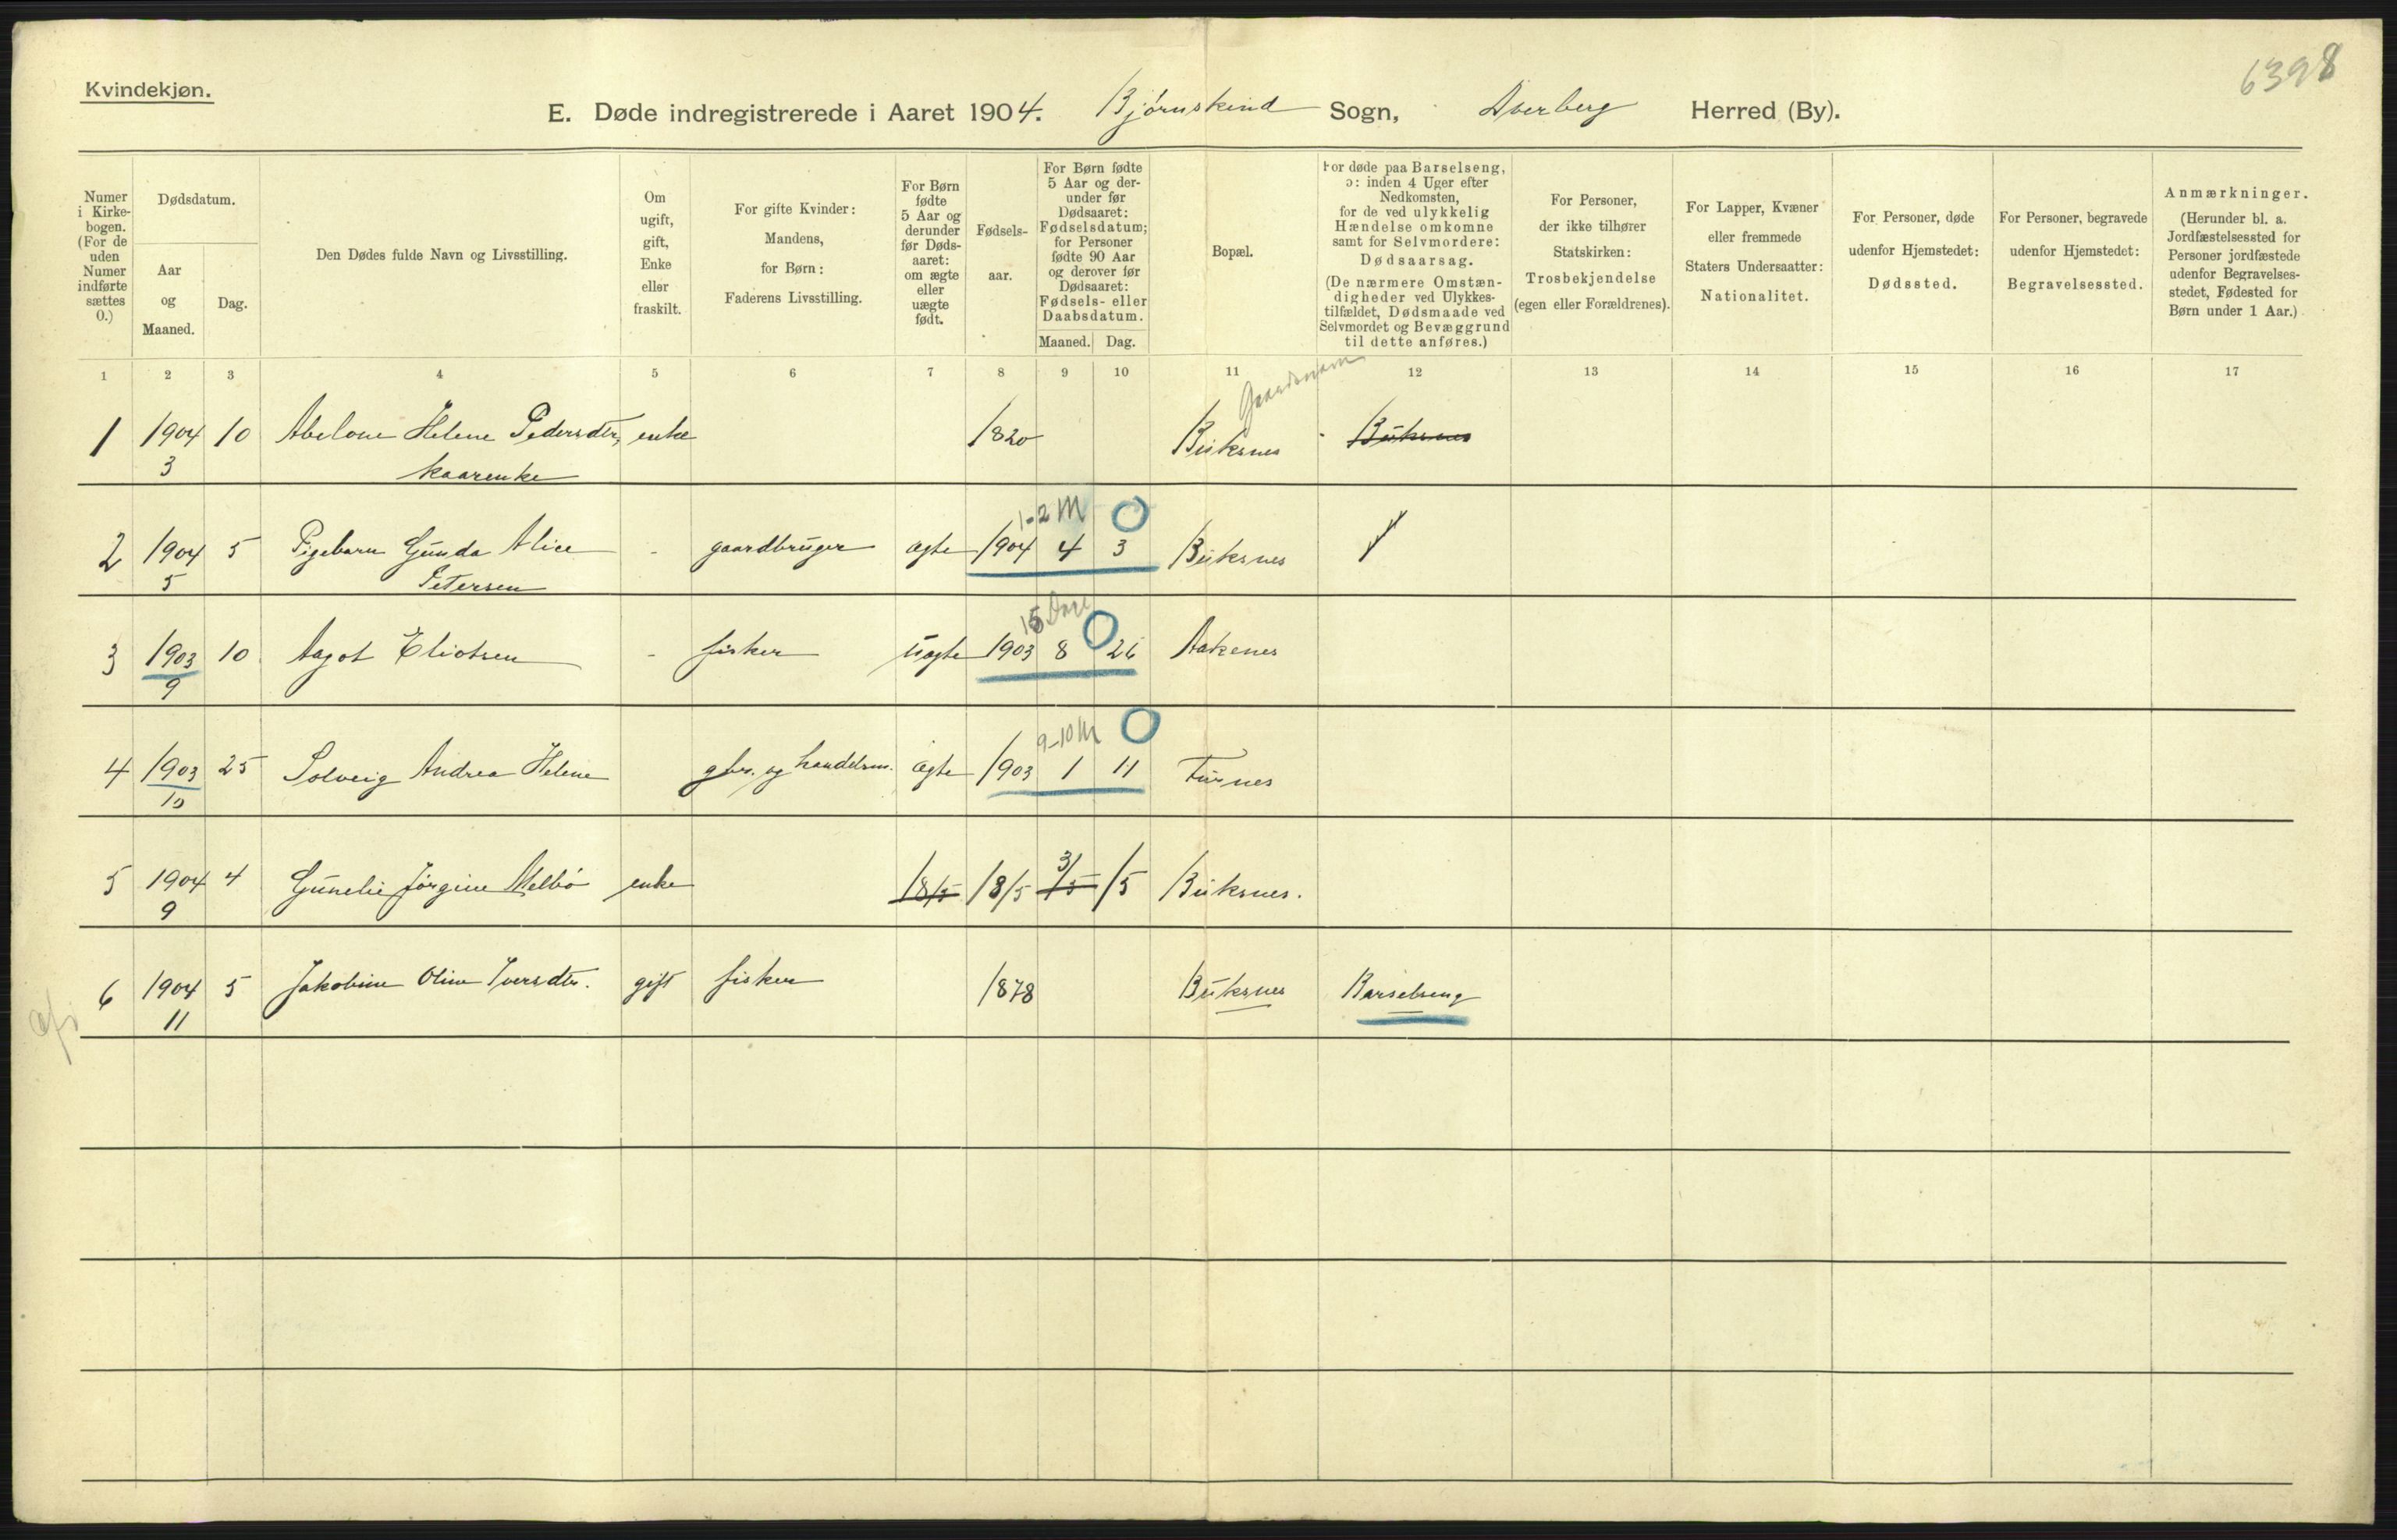 Kvindekjøn.
6398
E. Døde indregistrerede i Aaret 1904. Bjørnskind Sogn, Dverberg Herred (By).
Numer i Kirkebogen. (For de uden Numer indførte sættes 0.)
Dødsdatum.
Aar og Maaned.
Dag.
Den Dødes fulde Navn og Livsstilling.
Om ugift, gift, Enke eller fraskilt.
For gifte Kvinder: Mandens, for Børn: Faderens Livsstilling.
For Børn fødte 5 Aar og derunder før Dødsaaret: om ægte eller uægte født.
Fødselsaar.
For Børn fødte 5 Aar og derunder før Dødsaaret: Fødselsdatum; for Personer fødte 90 Aar og derover før Dødsaaret: Fødsels- eller Daabsdatum.
Maaned. Dag.
Bopæl.
For døde paa Barselseng, ɔ: inden 4 Uger efter Nedkomsten, for de ved ulykkelig Hændelse omkomne samt for Selvmordere: Dødsaarsag. (De nærmere Omstændigheder ved Ulykkestilfældet, Dødsmaade ved Selvmordet og Bevæggrund til dette anføres.)
For Personer, der ikke tilhører Statskirken: Trosbekjendelse (egen eller Forældrenes).
For Lapper, Kvæner eller fremmede Staters Undersaatter: Nationalitet.
For Personer, døde udenfor Hjemstedet: Dødssted.
For Personer, begravede udenfor Hjemstedet: Begravelsessted.
Anmærkninger. (Herunder bl. a. Jordfæstelsessted for Personer jordfæstede udenfor Begravelsesstedet, Fødested for Børn under 1 Aar.)
1 2 3 4 5 6 7 8 9 10 11 12 13 14 15 16 17
Gaardsnavn
1 1904 10 Abelone Helene Pedersdtr, enke 1820 Buksnes Buksnes
3 kaarenke
1-2 M
2 1904 5 Pigebarn Gunda Alice - gaardbruger ægte 1904 4 3 Buksnes
5 Petersen
15 Dage
3 1903 10 Aagot Eliotsen - fisker uægte 1903 8 26 Aaknes
9
9-10 M
4 1903 25 Solveig Andrea Helene gbr. og handelsm. ægte 1903 1 11 Turnes
10
5 1904 4 Gunelie Jørgine Melbö enke 18/5 18/5 3/5 15 Buksnes.
9
6 1904 5 Jakobine Oline Iversdtr. gift fisker 1878 Buksnes Barselseng
11